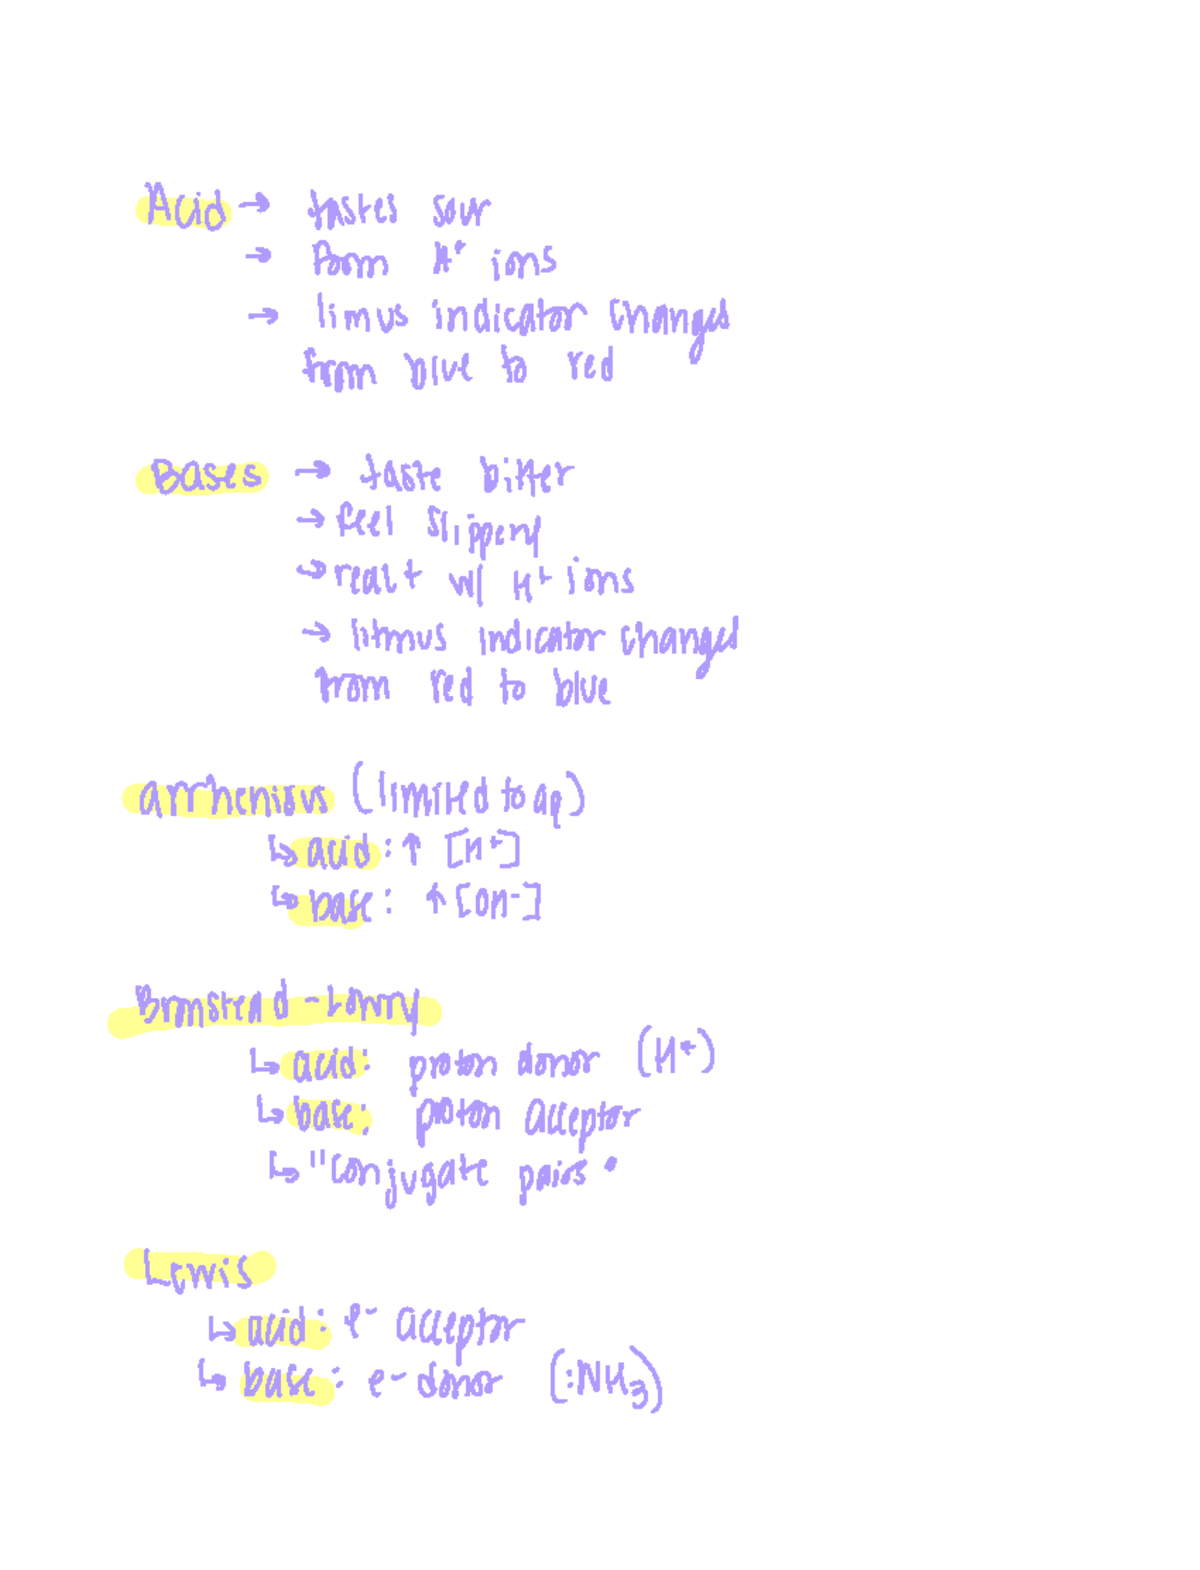 Acid → tastes sour
→ Form H⁺ ions
→ limus indicator changes
from blue to red
Bases → taste bitter
→ feel slippery
→ react w/ H⁺ ions
→ litmus indicator changes
from red to blue
arrhenious (limited to aq)
↳ acid: ↑ [H⁺]
↳ base: ↑ [OH⁻]
Bronstead-Lowry
↳ acid: proton donor (H⁺)
↳ base: proton acceptor
↳ "conjugate pairs"
Lewis
↳ acid: e⁻ acceptor
↳ base: e⁻ donor (:NH₃)